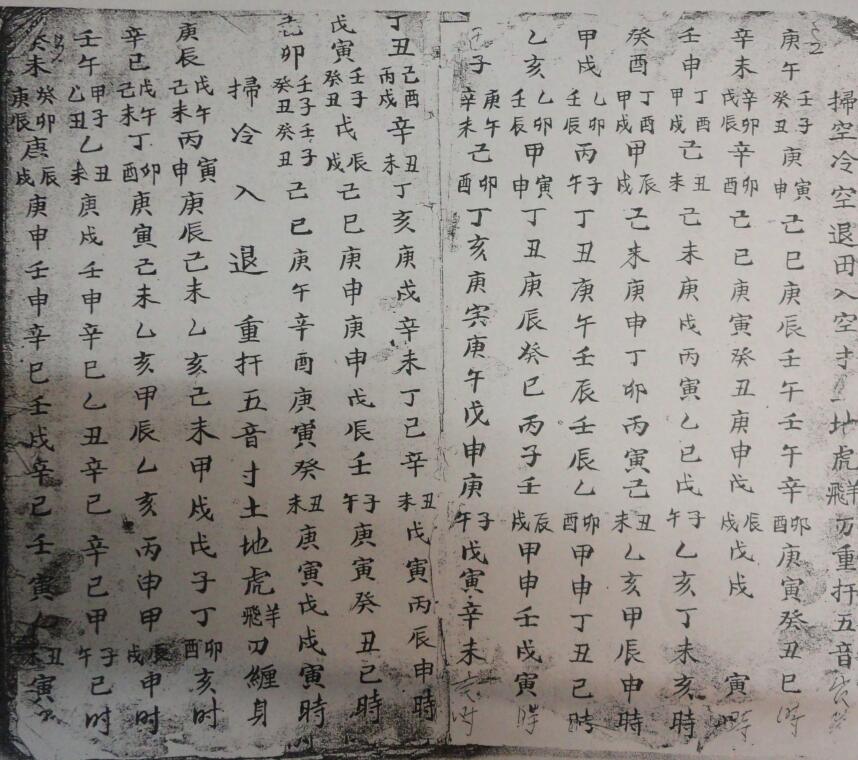 掃空冷空退田入空寸土地虎飛羊刃重扞五音
庚午壬子癸丑庚寅申己巳庚辰壬午壬午辛卯酉庚寅癸丑巳時
辛未辛卯戊辰辛卯酉己巳庚寅癸丑庚申戊辰戌戊戌寅時
壬申丁酉甲戌己丑未己未庚戌丙寅乙巳戊子午乙亥丁未亥時
癸酉丁酉甲戌甲辰戌己未庚申丁卯丙寅己丑未乙亥甲辰申時
甲戌乙卯壬辰丙子午丁丑庚午壬辰壬辰乙卯酉甲申丁丑巳時
乙亥乙卯壬辰甲寅申丁丑庚辰癸巳丙子壬辰戌甲申壬戌寅時
子庚午辛未己卯酉丁亥庚寅庚午戊申庚子午戊寅辛未亥时
丁丑己酉丙戌辛丑未丁亥庚戌辛未丁巳辛丑未戊寅丙辰申時
戊寅壬子癸丑戊辰戌己巳庚申庚申戊辰壬子午庚寅癸丑巳時
己卯壬子癸丑壬子癸丑己巳庚午辛酉庚寅癸丑未庚寅戊戌寅時
掃冷入退重扞五音寸土地虎飛羊刃纏身
庚辰戊午己未丙寅申庚辰己未乙亥己未甲戌戊子丁卯酉亥时
辛巳戊午己未丁卯酉庚寅己未乙亥甲辰乙亥丙申甲辰戌申时
壬午甲子乙丑乙丑未庚戌壬申辛巳乙丑辛巳辛巳甲子午巳时
癸未癸卯庚辰庚辰戌庚申壬申辛巳壬戌辛巳壬寅丑未寅